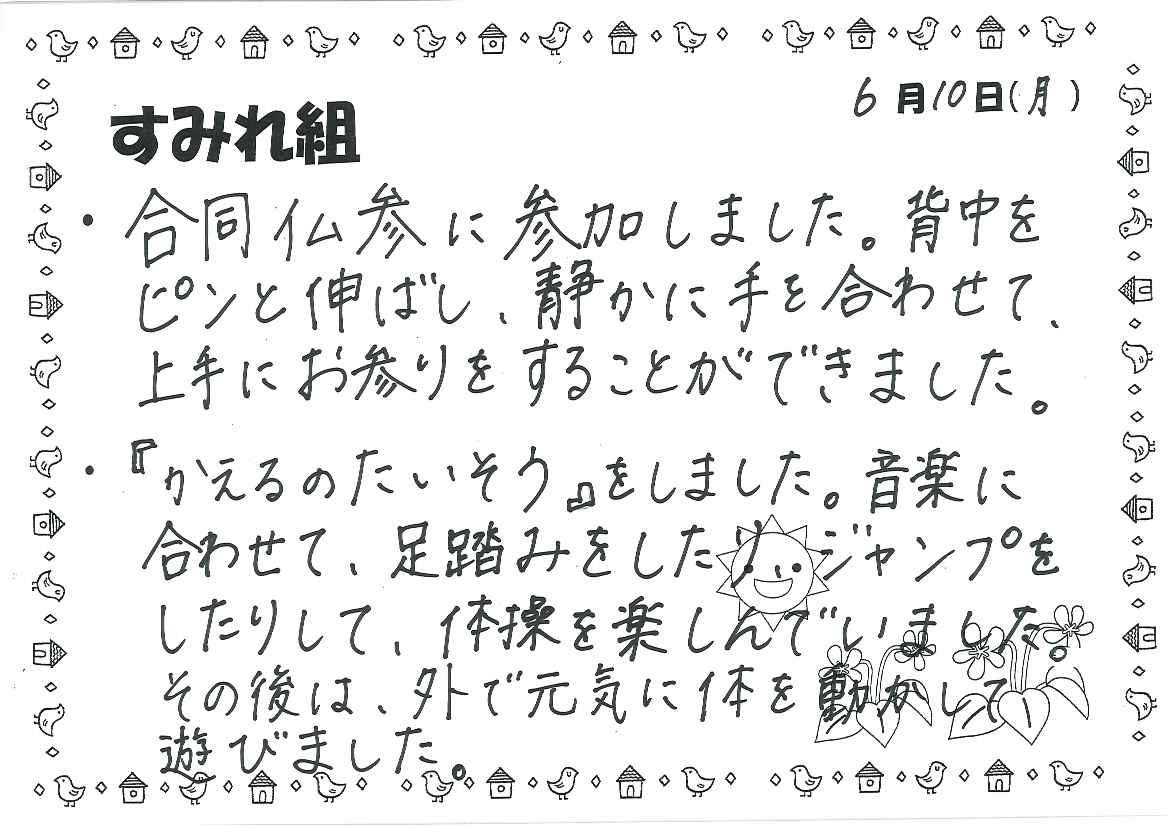 6月10日(月)
すみれ組
・合同仏参に参加しました。背中を
ピンと伸ばし、静かに手を合わせて、
上手にお参りをすることができました。
・『かえるのたいそう』をしました。音楽に
合わせて、足踏みをしたり、ジャンプを
したりして、体操を楽しんでいました。
その後は、外で元気に体を動かして
遊びました。